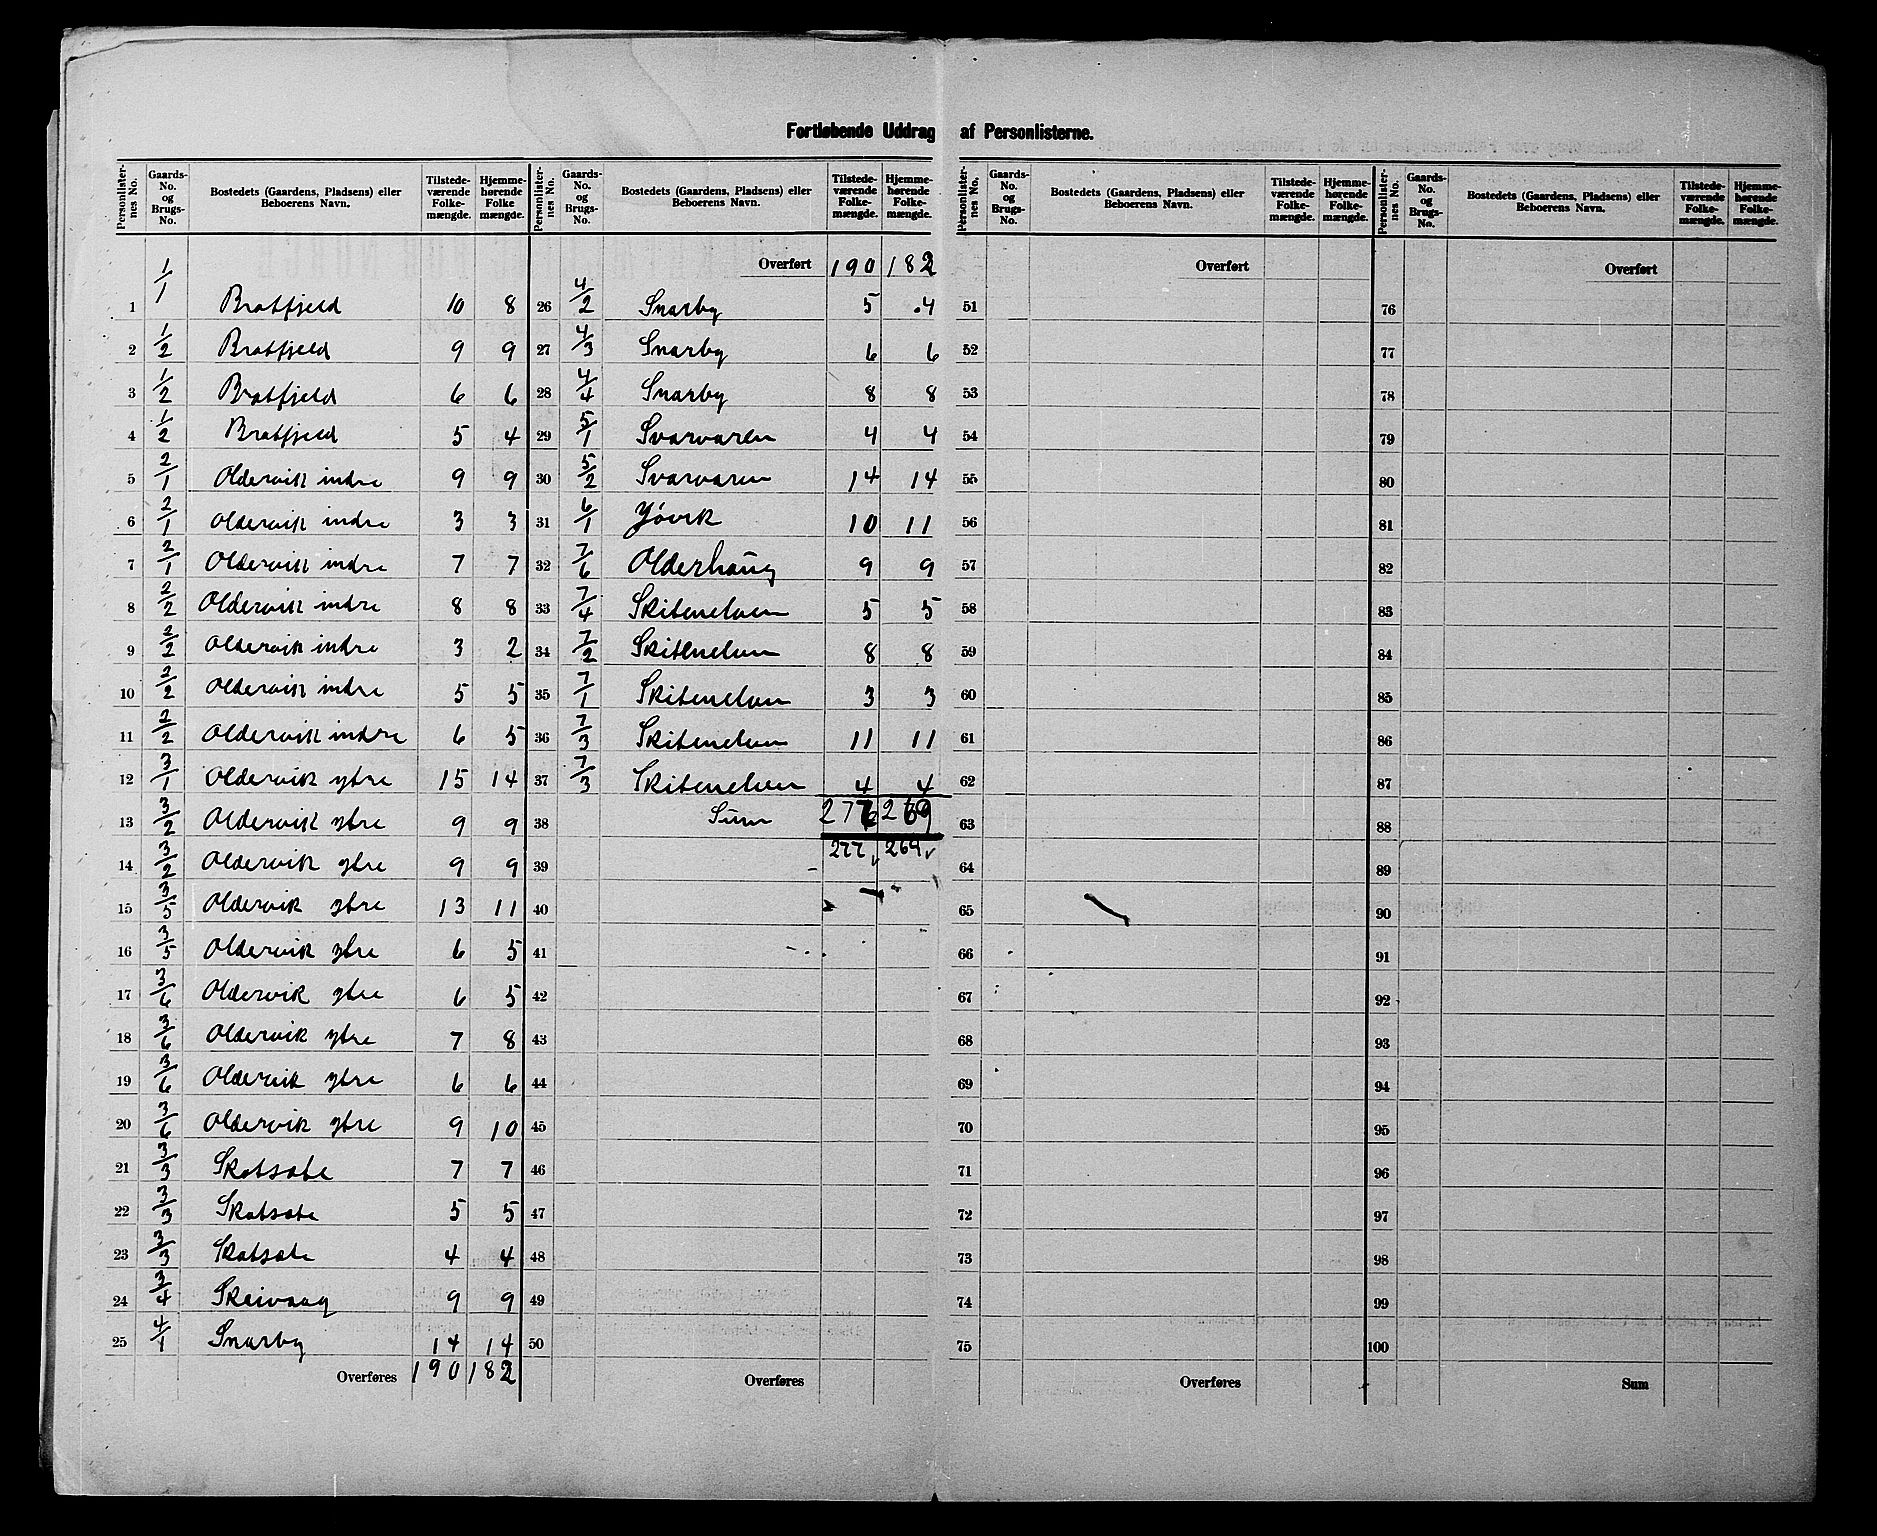 Fortløbende Uddrag af Personlisterne.
Personlisternes No. | Gaards-No. og Brugs-No. | Bostedets (Gaardens, Pladsens) eller Beboerens Navn. | Tilstedeværende Folkemængde. | Hjemmehørende Folkemængde.
1 1/1 Bratfjeld 10 8
2 1/2 Bratfjeld 9 9
3 1/2 Bratfjeld 6 6
4 1/2 Bratfjeld 5 4
5 2/1 Oldervik indre 9 9
6 2/1 Oldervik indre 3 3
7 2/1 Oldervik indre 7 7
8 2/2 Oldervik indre 8 8
9 2/2 Oldervik indre 3 2
10 2/2 Oldervik indre 5 5
11 2/2 Oldervik indre 6 5
12 3/1 Oldervik ytre 15 14
13 3/2 Oldervik ytre 9 9
14 3/2 Oldervik ytre 9 9
15 3/5 Oldervik ytre 13 11
16 3/5 Oldervik ytre 6 5
17 3/6 Oldervik ytre 6 5
18 3/6 Oldervik ytre 7 8
19 3/6 Oldervik ytre 6 6
20 3/6 Oldervik ytre 9 10
21 3/3 Skatsate 7 7
22 3/3 Skatsate 5 5
23 3/3 Skatsate 4 4
24 3/4 Skeivaag 9 9
25 4/1 Snarby 14 14
Overføres 190 182
Personlisternes No. | Gaards-No. og Brugs-No. | Bostedets (Gaardens, Pladsens) eller Beboerens Navn. | Tilstedeværende Folkemængde. | Hjemmehørende Folkemængde.
Overført 190 182
26 4/2 Snarby 5 4
27 4/3 Snarby 6 6
28 4/4 Snarby 8 8
29 5/1 Svarvaren 4 4
30 5/2 Svarvaren 14 14
31 6/1 Jövik 10 11
32 7/6 Olderhaug 9 9
33 7/4 Skitenelven 5 5
34 7/2 Skitenelven 8 8
35 7/1 Skitenelven 3 3
36 7/3 Skitenelven 11 11
37 7/3 Skitenelven 4 4
38 Sum 277 269
39 277 269
40
41
42
43
44
45
46
47
48
49
50
Overføres
Personlisternes No. | Gaards-No. og Brugs-No. | Bostedets (Gaardens, Pladsens) eller Beboerens Navn. | Tilstedeværende Folkemængde. | Hjemmehørende Folkemængde.
Overført
51
52
53
54
55
56
57
58
59
60
61
62
63
64
65
66
67
68
69
70
71
72
73
74
75
Overføres
Personlisternes No. | Gaards-No. og Brugs-No. | Bostedets (Gaardens, Pladsens) eller Beboerens Navn. | Tilstedeværende Folkemængde. | Hjemmehørende Folkemængde.
Overført
76
77
78
79
80
81
82
83
84
85
86
87
88
89
90
91
92
93
94
95
96
97
98
99
100
Sum